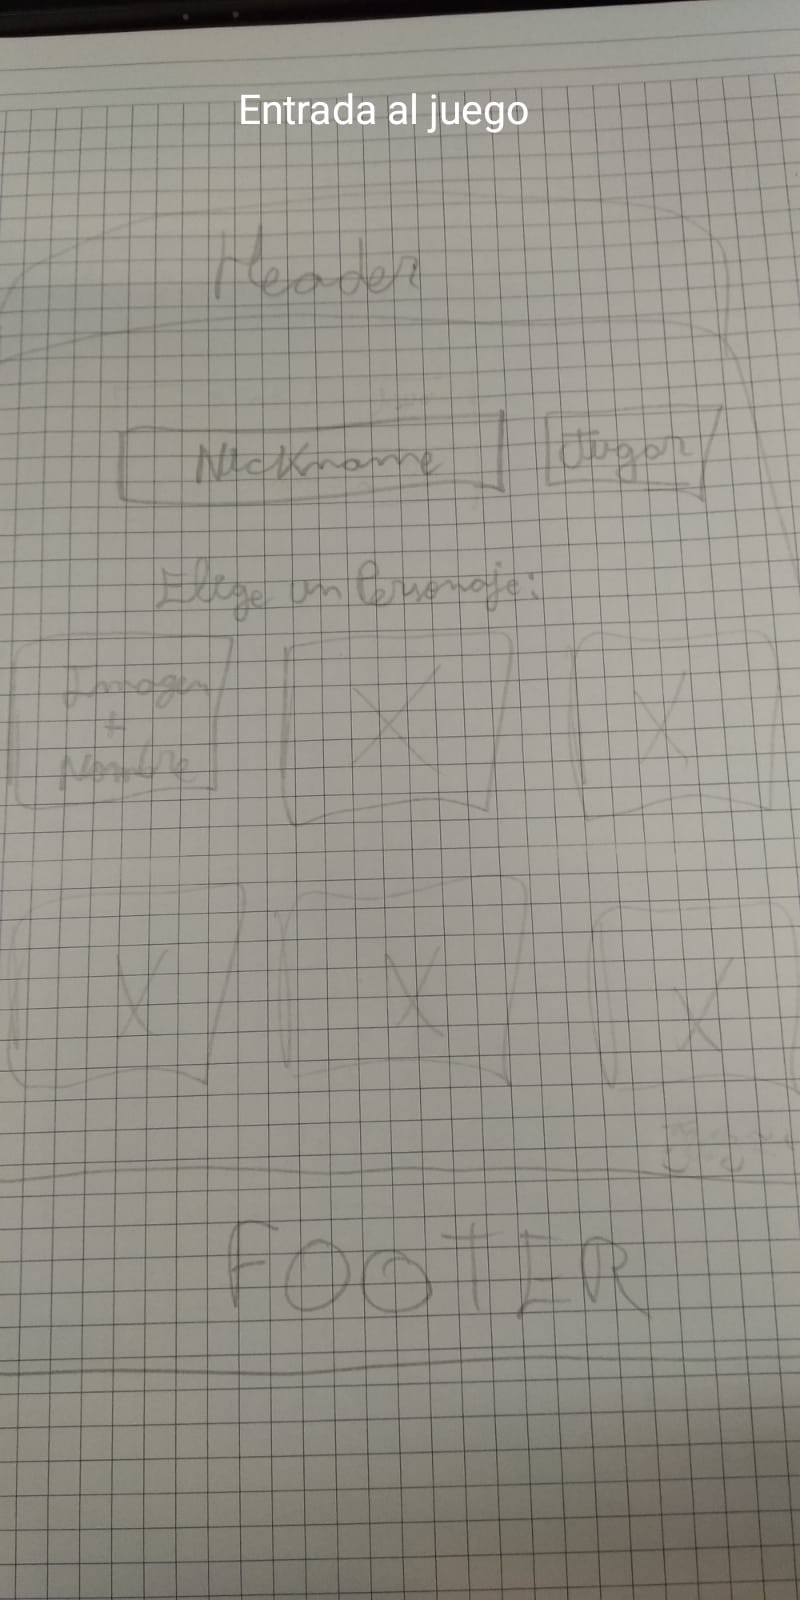 Entrada al juego
Header
Nickname
Jugar
Elige un Personaje:
Imagen
+
Nombre
X
X
X
X
X
FOOTER